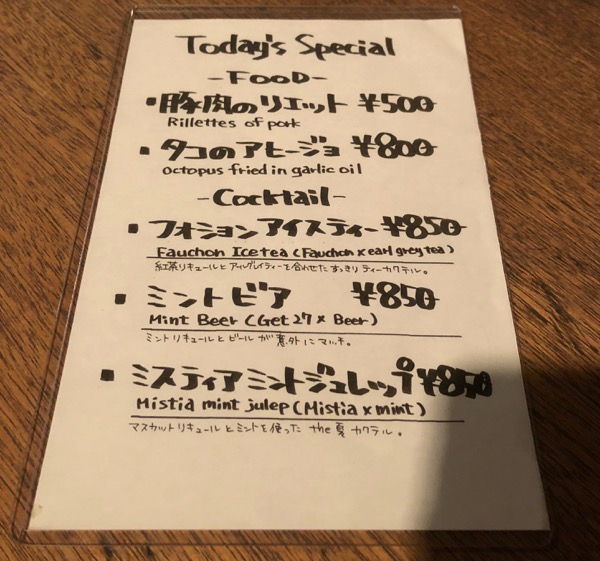 Today's Special
-FOOD-
▪ 豚肉のリエット ¥500
Rillettes of pork
▪ タコのアヒージョ ¥800
octopus fried in garlic oil
-Cocktail-
▪ フォションアイスティー ¥850
Fauchon Icetea (Fauchon x earl grey tea)
紅茶リキュールとアールグレイティーを合わせたすっきりティーカクテル。
▪ ミントビア ¥850
Mint Beer (Get 27 x Beer)
ミントリキュールとビールが意外にマッチ。
▪ ミスティアミントジュレップ ¥850
Mistia mint julep (Mistia x mint)
マスカットリキュールとミントを使った the 夏カクテル。